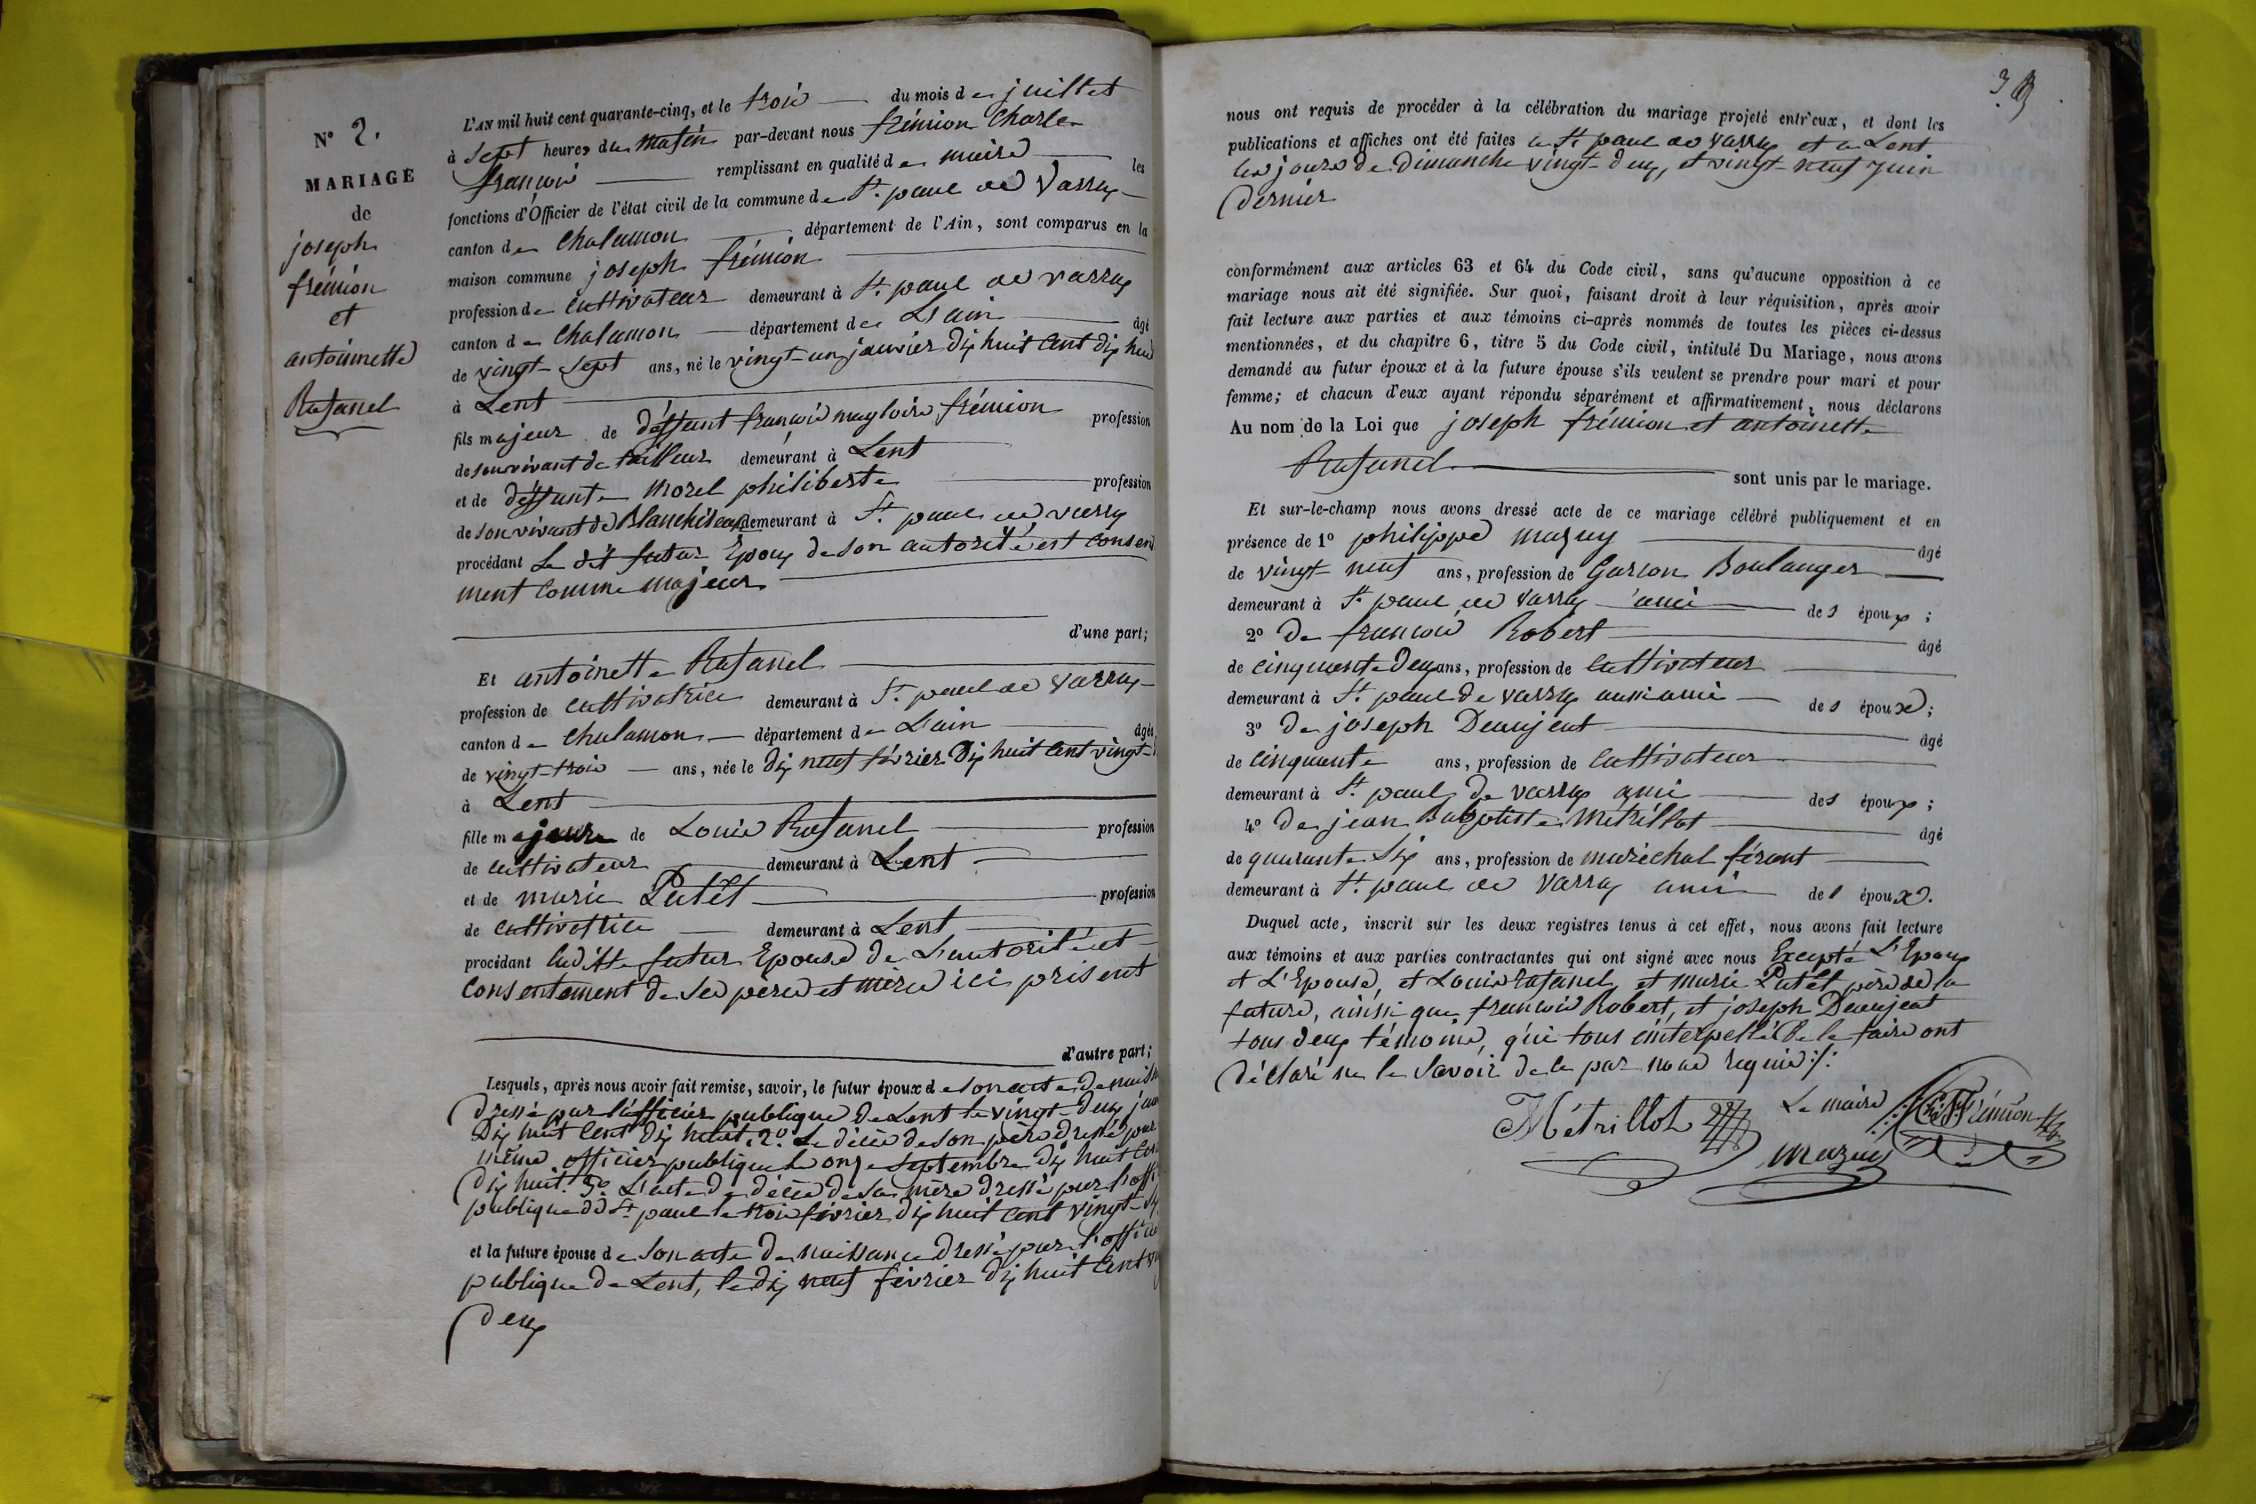 N° 2.
MARIAGE
de
joseph
frémion
et
antoinette
Rafanel
L'AN mil huit cent quarante-cinq, et le trois du mois de juillet
à sept heures du matin par-devant nous frémion Charles
françois remplissant en qualité de maire les
fonctions d'Officier de l'état civil de la commune de St. paul de Varax
canton de Chalamon département de l'Ain, sont comparus en la
maison commune joseph frémion
profession de Cultivateur demeurant à St. paul de varax
canton de Chalamon département de L'ain âgé
de vingt-sept ans, né le vingt-un janvier Dix huit Cent dix huit
à Lent
fils majeur de déffunt françois magloire frémion profession
de son vivant de tailleur demeurant à Lent
et de déffunte Morel philiberte profession
de son vivant de Blanchiseuse demeurant à St. paul de varax
procédant Le dit futur Epoux de son autorité et consente
ment comme majeur
d'une part;
Et antoinette Rafanel
profession de Cultivatrice demeurant à St. paul de Varax
canton de Chalamon département de L'ain âgée
de vingt-trois ans, née le dix neuf février Dix huit Cent vingt-
à Lent
fille majeure de Louis Rafanel profession
de cultivateur demeurant à Lent
et de marie Putét profession
de cultivatrice demeurant à Lent
procédant laditte futur Epouse de L'autorité et
Consentement de ses pere et mère ici présent
d'autre part;
Lesquels, après nous avoir fait remise, savoir, le futur époux de son acte de naiss
Dressé par l'officier publique de Lent le vingt-deux jan
Dix huit Cent dix huit. 2° Le décès de son père dressé par
même officier publique le onze septembre dix huit Cen
Dix huit. 3° L'acte de décès de sa mère dressé par l'offi
publique de St. paul le trois février dix huit Cent vingt-
et la future épouse de son acte de naissance dressé par l'offici
publique de Lent, le dix neuf février dix huit Cent
deux
3
nous ont requis de procéder à la célébration du mariage projeté entr'eux, et dont les
publications et affiches ont été faites à St. paul de Varax et à Lent
les jours de Dimanche vingt-deux, et vingt-neuf juin
Dernier
conformément aux articles 63 et 64 du Code civil, sans qu'aucune opposition à ce
mariage nous ait été signifiée. Sur quoi, faisant droit à leur réquisition, après avoir
fait lecture aux parties et aux témoins ci-après nommés de toutes les pièces ci-dessus
mentionnées, et du chapitre 6, titre 5 du Code civil, intitulé Du Mariage, nous avons
demandé au futur époux et à la future épouse s'ils veulent se prendre pour mari et pour
femme; et chacun d'eux ayant répondu séparément et affirmativement, nous déclarons
Au nom de la Loi que joseph frémion et antoinette
Rafanel sont unis par le mariage.
Et sur-le-champ nous avons dressé acte de ce mariage célébré publiquement et en
présence de 1° philippe mazuy âgé
de vingt-neuf ans, profession de Garson Boulanger
demeurant à St. paul de Varax ami des époux;
2° de françois Robert âgé
de cinquante Deux ans, profession de Cultivateur
demeurant à St. paul de varax aussi ami des époux;
3° de joseph Deaujeat âgé
de cinquante ans, profession de Cultivateur
demeurant à St. paul de varax ami des époux;
4° de jean Baptiste Métrillot âgé
de quarante Six ans, profession de maréchal férant
demeurant à St. paul de varax ami des époux.
Duquel acte, inscrit sur les deux registres tenus à cet effet, nous avons fait lecture
aux témoins et aux parties contractantes qui ont signé avec nous Excepté L'Epoux
et L'Epouse, et Louis Rafanel et marie Putét père de la
future, ainsi que françois Robert, et joseph Deaujeat
tous deux témoins, qui tous interpellé de le faire ont
Déclaré ne le savoir de ce par nous requis :/:
Métrillot Le maire Ch. F. Frémion
Mazuy